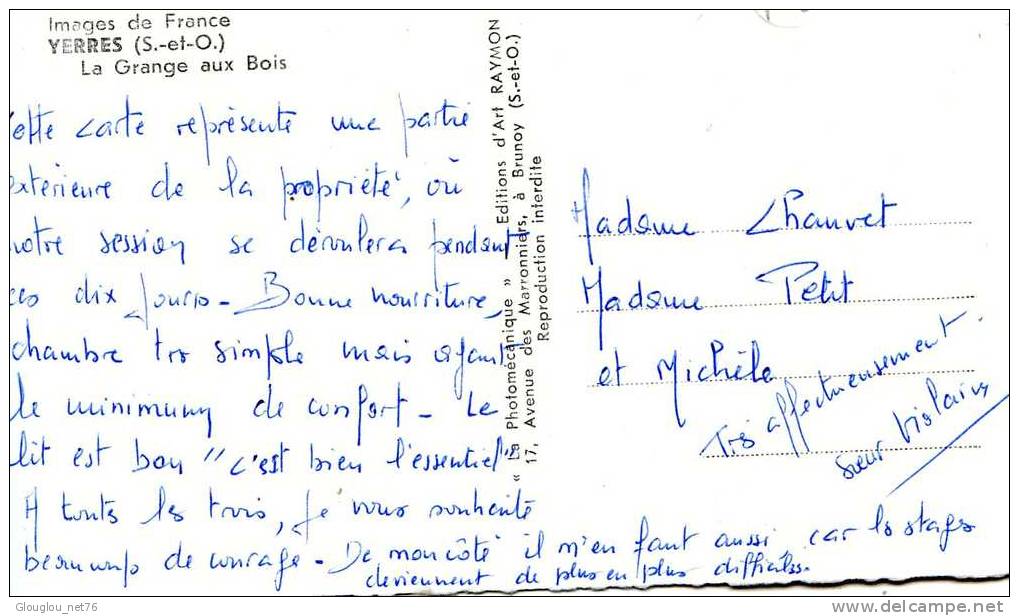 Images de France
YERRES (S.-et-O.)
La Grange aux Bois
Cette carte représente une partie
extérieure de la propriété, où
notre session se déroulera pendant
ces dix jours - Bonne nourriture,
chambre très simple mais ayant
le minimum de confort - Le
lit est bon "c'est bien l'essentiel"
A toutes les trois, je vous souhaite
beaucoup de courage - De mon côté il m'en faut aussi car les stages
deviennent de plus en plus difficiles.
Très affectueusement.
Sœur Violaine
Madame Chauvet
Madame Petit
et Michèle
« La Photomécanique » — Editions d'Art RAYMON
17, Avenue des Marronniers, à Brunoy (S.-et-O.)
Reproduction interdite
Glouglou_net76
delcampe.net